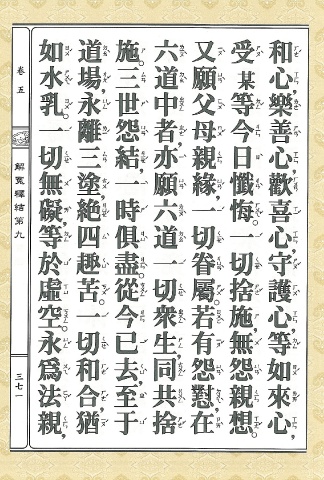 和心，樂善心，歡喜心，守護心，等如來心，
受某等今日懺悔。一切捨施，無怨親想。
又願父母親緣，一切眷屬，若有怨對，在
六道中者，亦願六道一切衆生，同共捨
施。三世怨結，一時俱盡。從今已去，至于
道場，永離三塗，絕四趣苦。一切和合，猶
如水乳。一切無礙，等於虛空。永爲法親，
卷五
解冤釋結第九
三七一